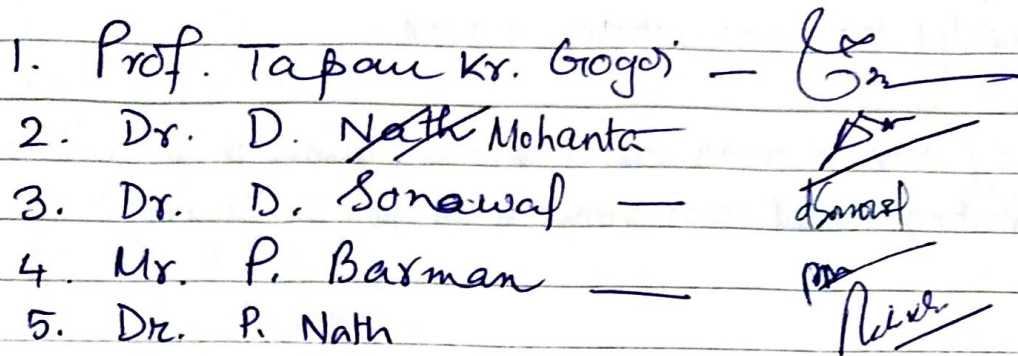 1. Prof. Tapan Kr. Gogoi —
2. Dr. D. Nath Mohanta
3. Dr. D. Sonowal — dSonowal
4. Mr. P. Barman —
5. Dr. P. Nath